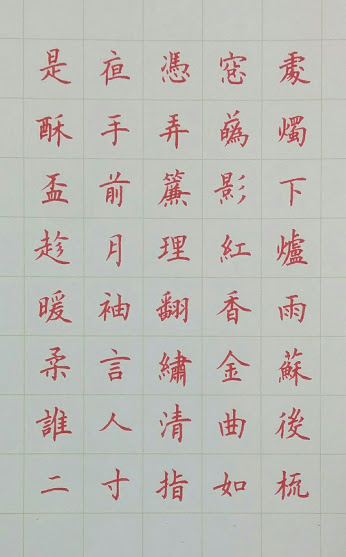 是亱憑窓處
酥手弄燭
盃前簾影下
趁月理紅爐
暖袖翻香雨
柔言繡金蘇
誰人清曲後
二寸指如梳